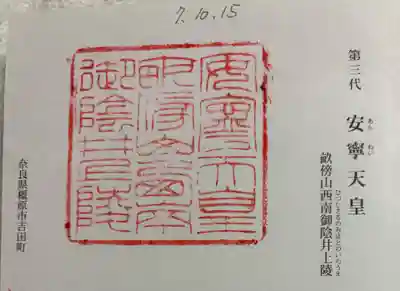 7.10.15
第三代
安寧天皇
あん ねい
畝傍山西南御陰井上陵
ひつじさるのみほどのいのうえ
安寧天皇
畝傍山西南
御陰井上陵
奈良県橿原市吉田町